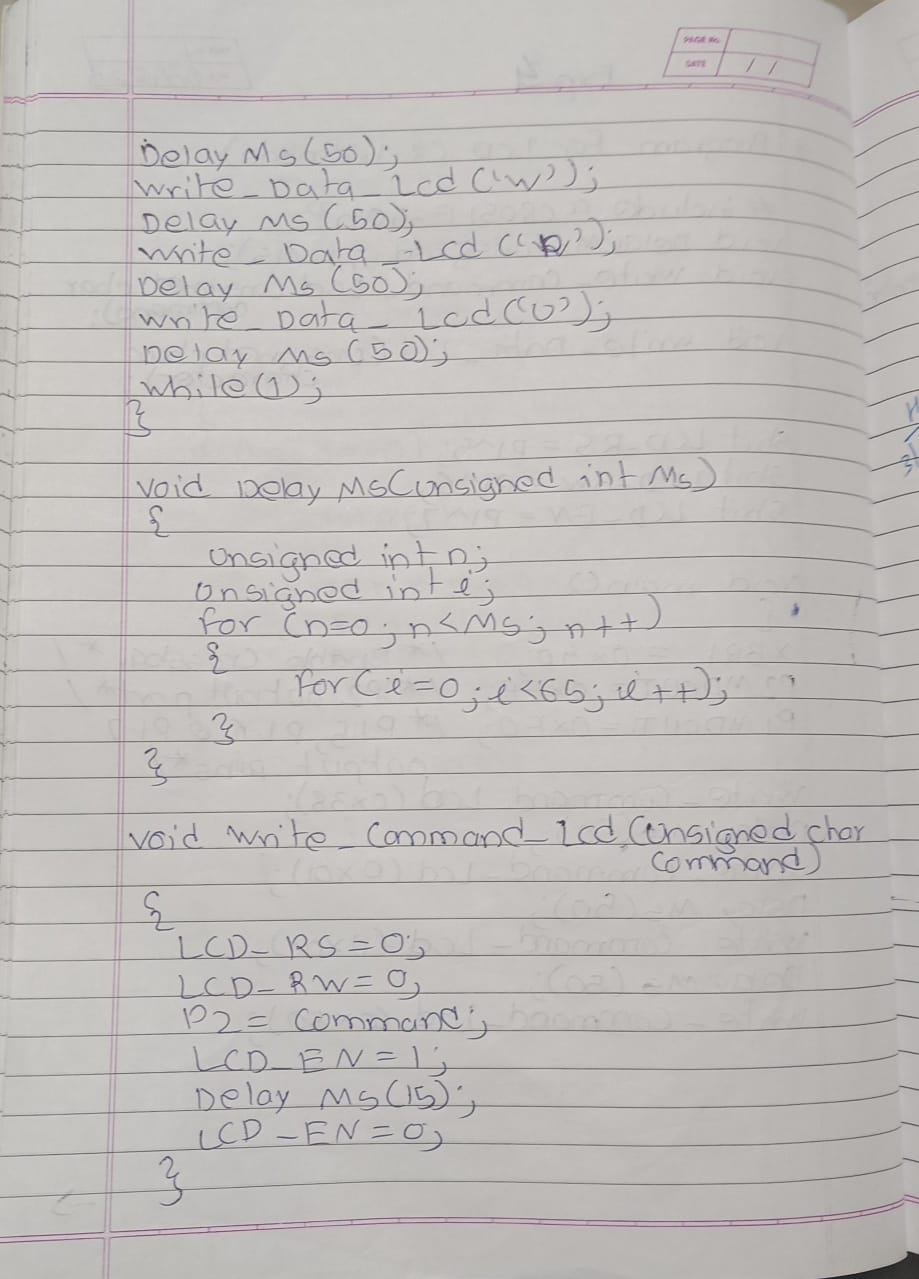 PAGE No.
DATE / /
Delay Ms(50);
Write_Data_Lcd('W');
Delay Ms(50);
Write_Data_Lcd('D');
Delay Ms(50);
Write_Data_Lcd('U');
Delay Ms(50);
while(1);
}
void Delay Ms(unsigned int Ms)
{
unsigned int n;
unsigned int i;
for (n=0; n<Ms; n++)
{
for(i=0; i<65; i++);
}
}
void Write_Command_Lcd(unsigned char
Command)
{
LCD_RS=0;
LCD_RW=0;
P2=Command;
LCD_EN=1;
Delay Ms(15);
LCD_EN=0;
}